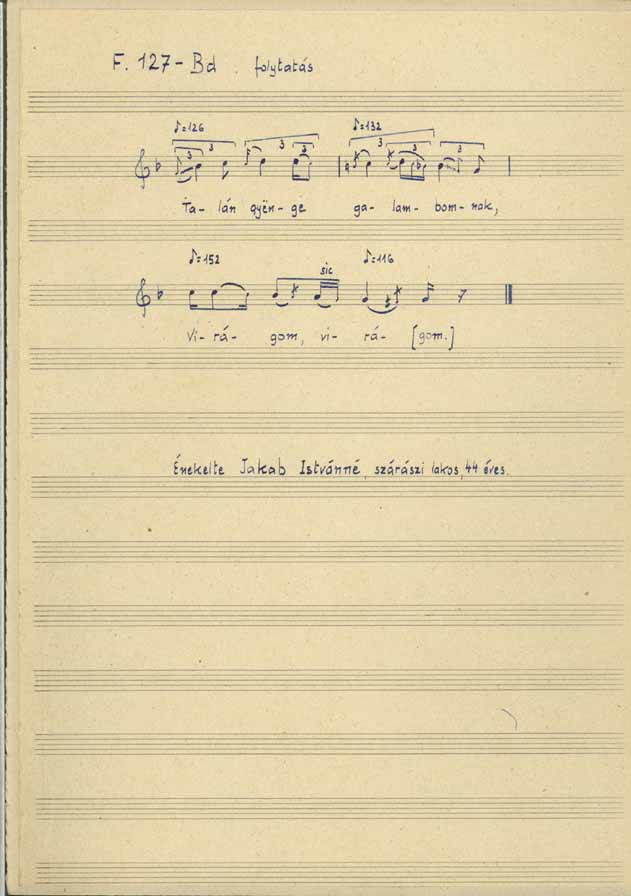 F. 127 - Bd folytatás
♪=126 ♪=132
3 3 3 3 3 3 3
Ta- lán gyën- ge ga- lam- bom- nak,
♪=152 sic ♪=116
Vi- rá- gom, vi- rá- [gom.]
Énekelte Jakab Istvánné, szárászi lakos, 44 éves.